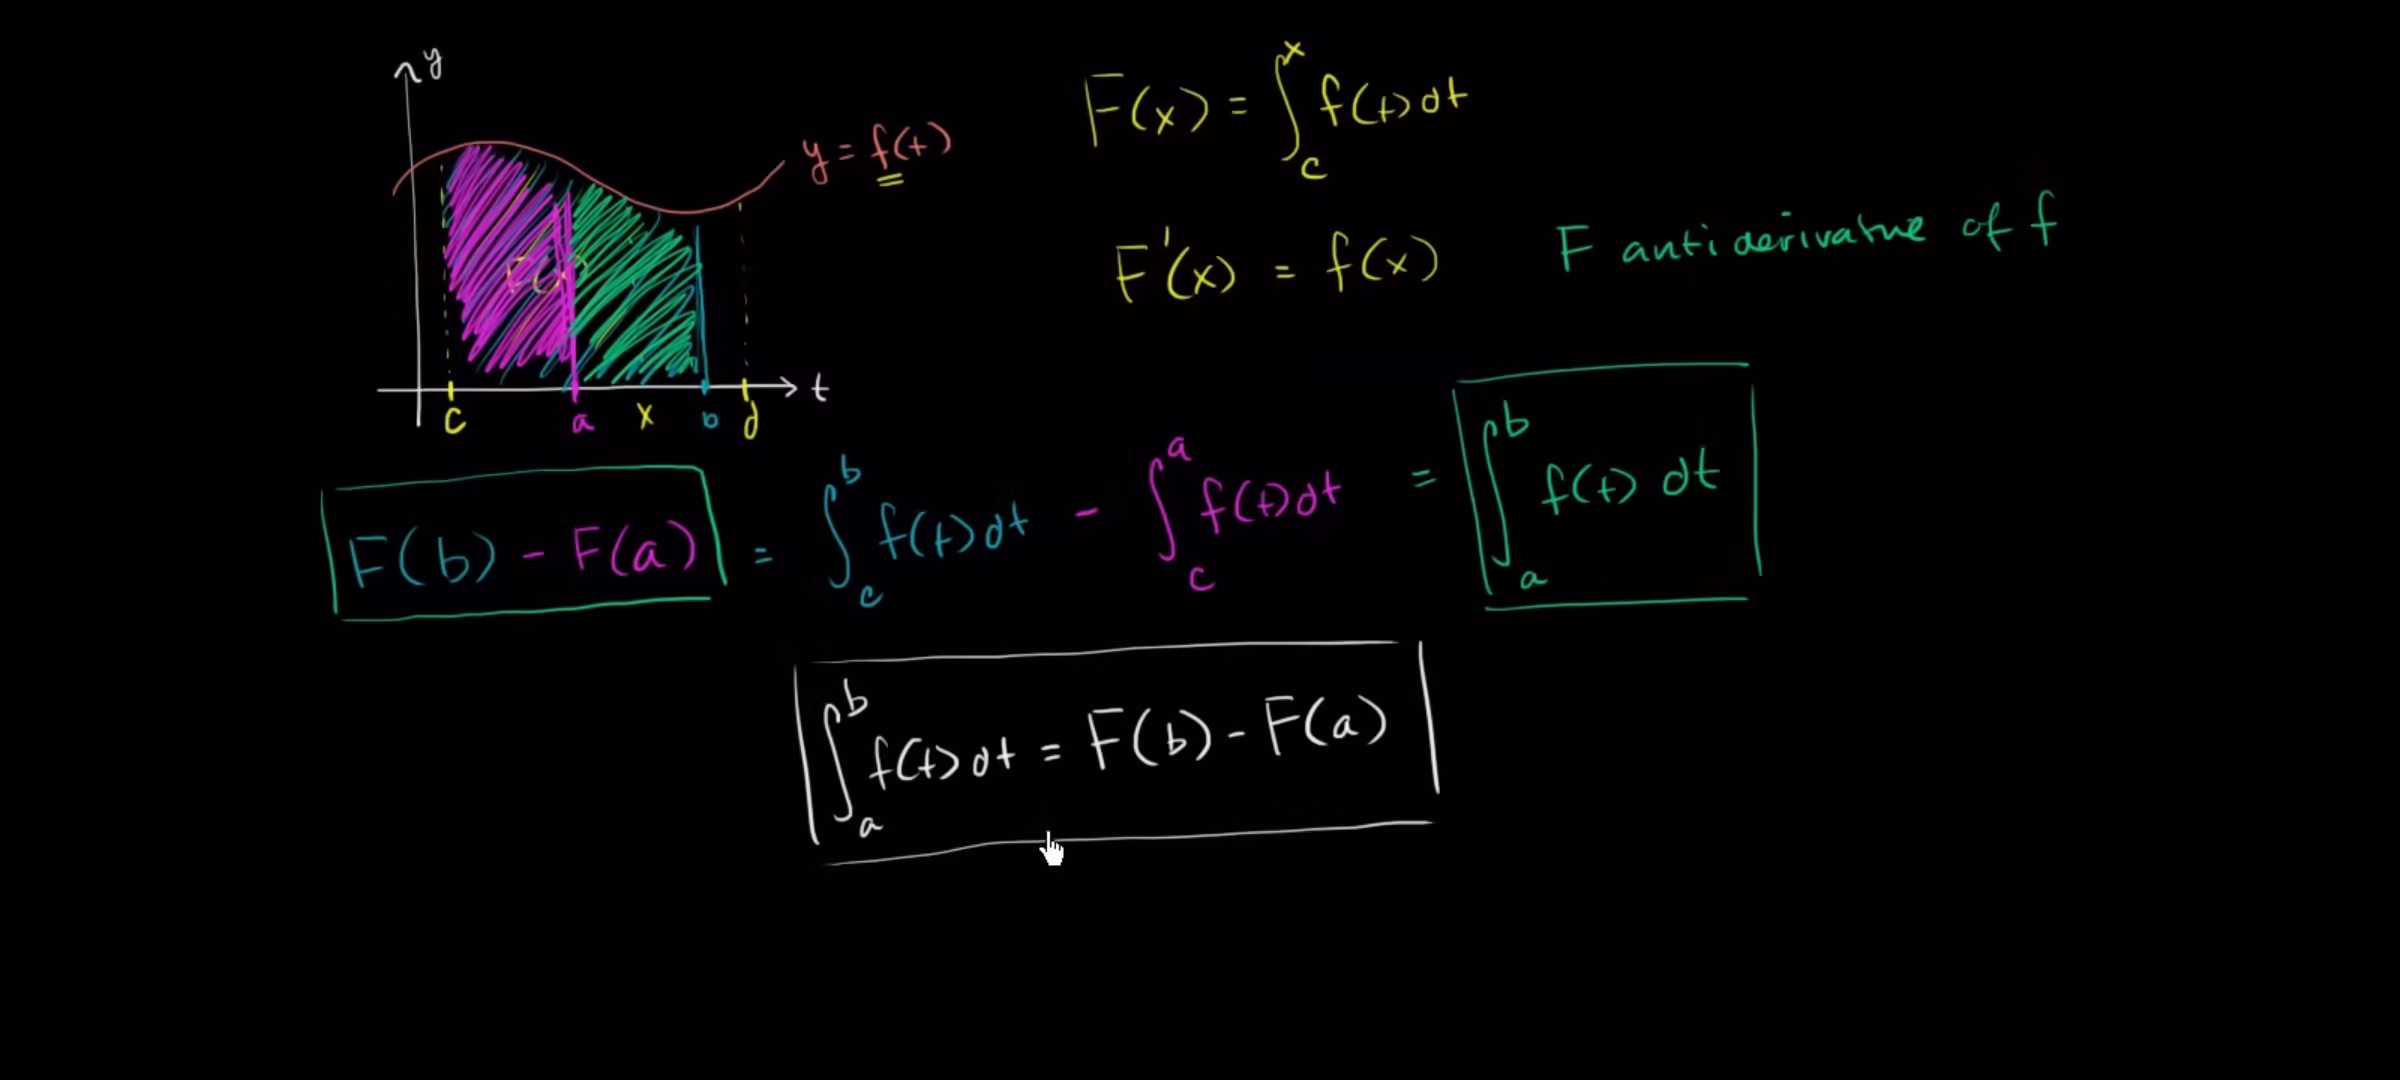 y
y = f(t)
F(x)
t
c a x b d
F(x) = ∫_c^x f(t) dt
F'(x) = f(x) F antiderivative of f
F(b) - F(a) = ∫_c^b f(t) dt - ∫_c^a f(t) dt = ∫_a^b f(t) dt
∫_a^b f(t) dt = F(b) - F(a)